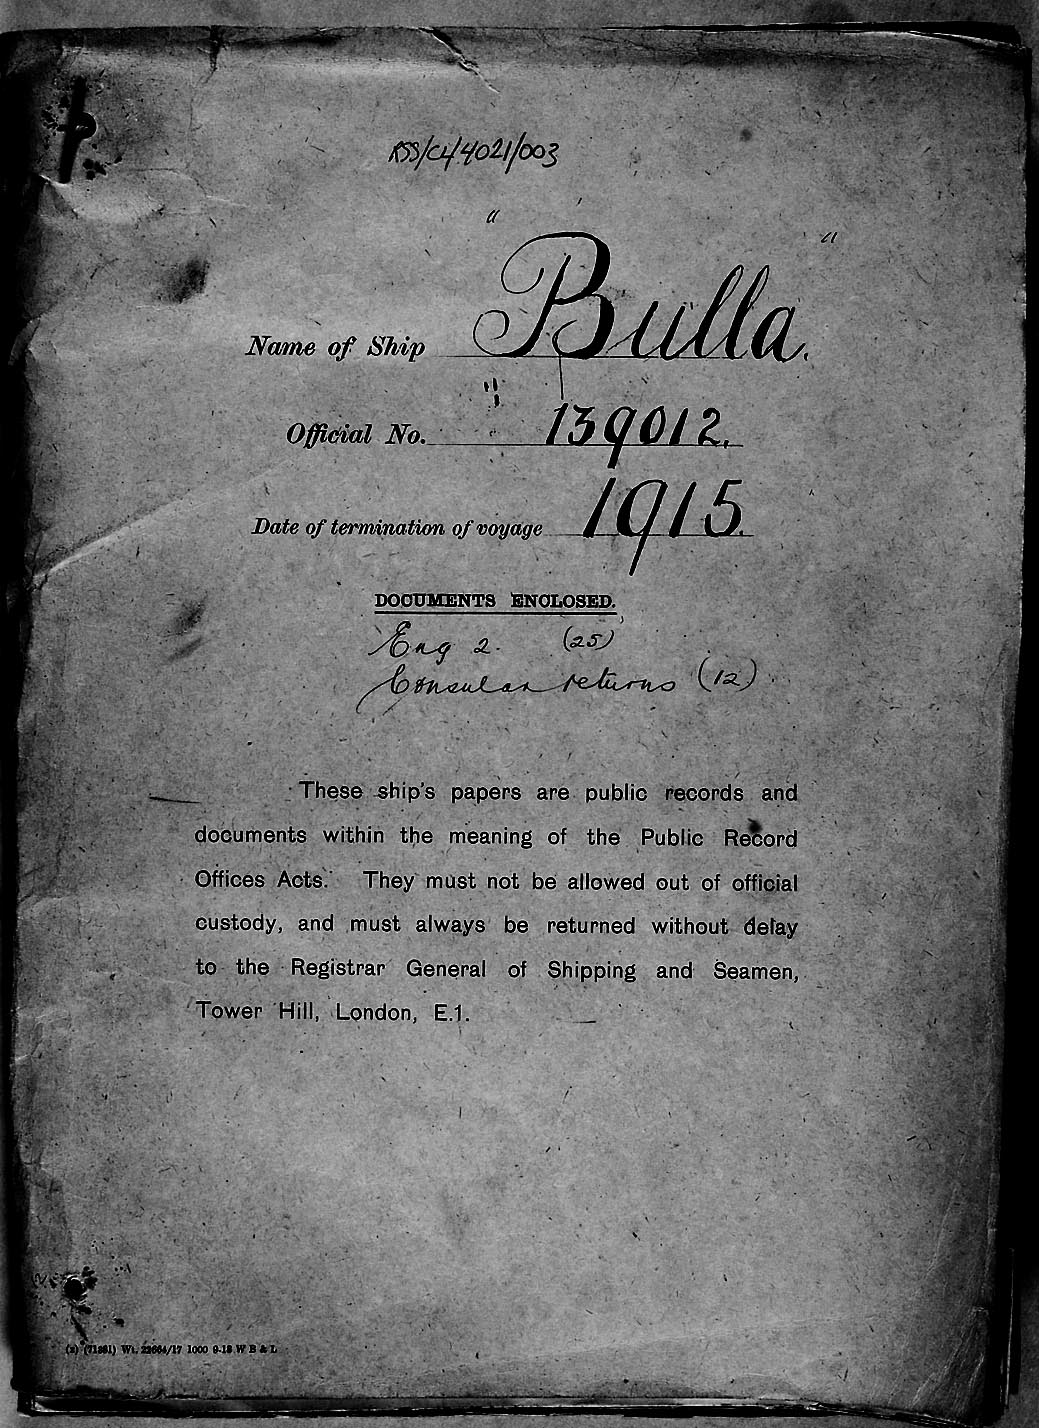 RSS/CL/4021/003
Name of Ship "Bulla."
Official No. 139012.
Date of termination of voyage 1915.
DOCUMENTS ENCLOSED.
Eng 2. (25)
Consular returns (12)
These ship's papers are public records and
documents within the meaning of the Public Record
Offices Acts. They must not be allowed out of official
custody, and must always be returned without delay
to the Registrar General of Shipping and Seamen,
Tower Hill, London, E.1.
Wt. 22664/17 1000 9-18 W B & L